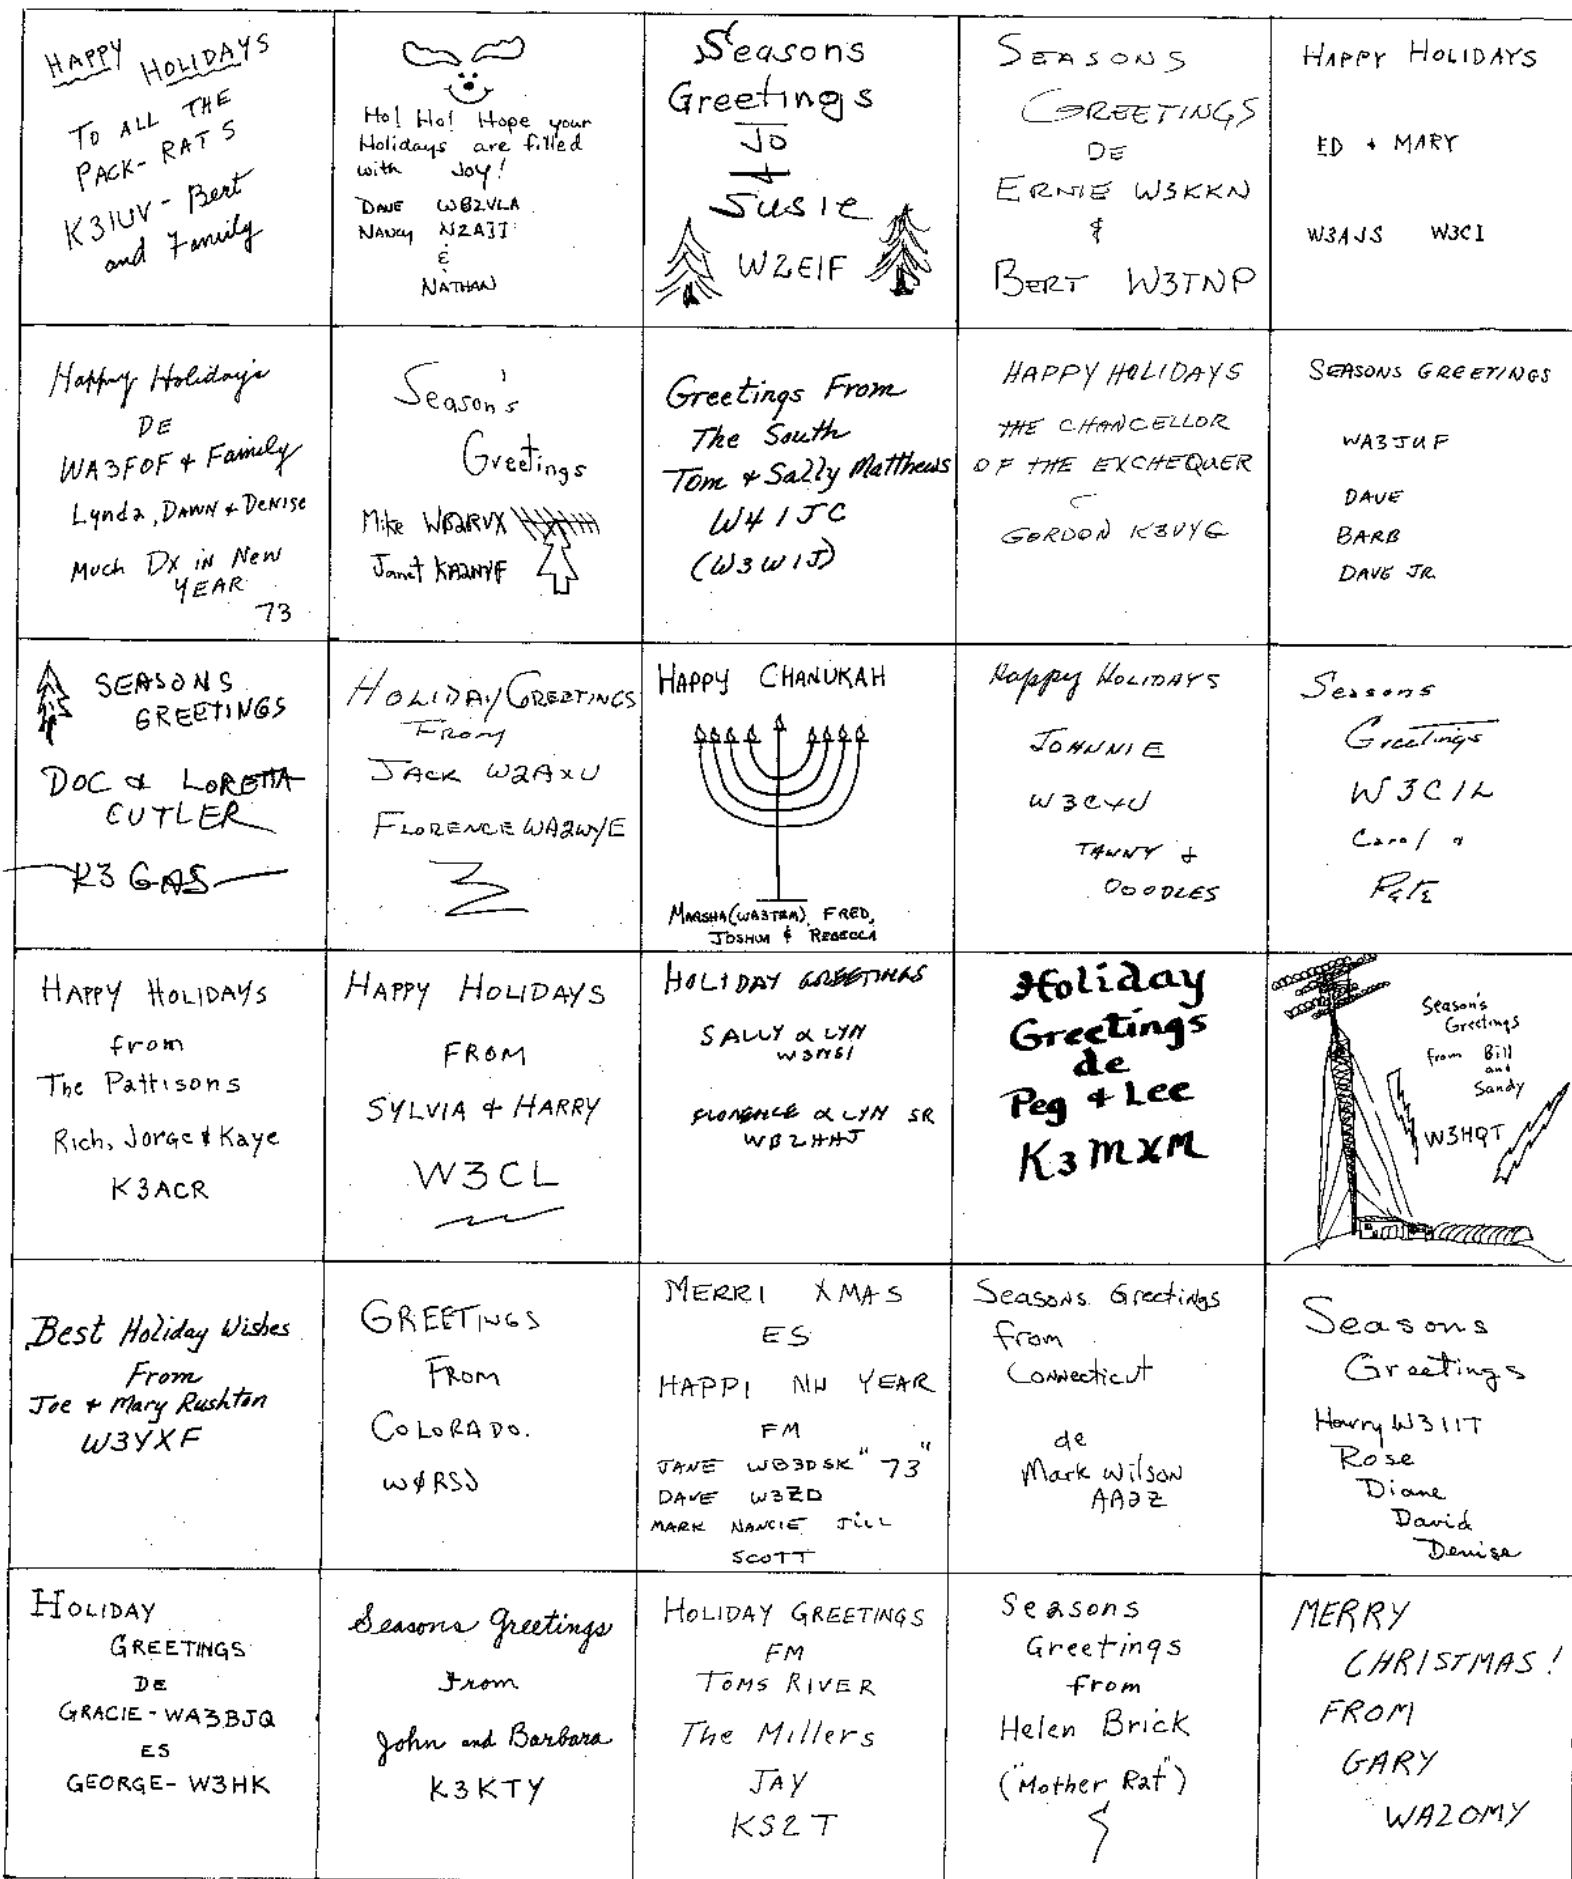 HAPPY HOLIDAYS
TO ALL THE
PACK-RATS
K3IUV - Bert
and Family
Ho! Ho! Hope your
Holidays are filled
with Joy!
DAVE WB2VLA
NANCY N2AJJ
&
NATHAN
Seasons
Greetings
JO
+
Susie
W2EIF
SEASONS
GREETINGS
DE
ERNIE W3KKN
&
BERT W3TNP
HAPPY HOLIDAYS
ED + MARY
W3AJS W3CI
Happy Holidays
DE
WA3FOF + Family
Lynda, DAWN + DENISE
Much DX in New
YEAR
73
Season's
Greetings
Mike WB2RVX
Janet KA2NYF
Greetings From
The South
Tom + Sally Matthews
W4IJC
(W3WIJ)
HAPPY HOLIDAYS
THE CHANCELLOR
OF THE EXCHEQUER
GORDON K3VYG
SEASONS GREETINGS
WA3JUF
DAVE
BARB
DAVE JR.
SEASONS
GREETINGS
DOC & LORETTA
CUTLER
K3GAS
HOLIDAY GREETINGS
FROM
JACK W2AXU
FLORENCE WA2WYE
HAPPY CHANUKAH
MARSHA (WA3TRM) FRED,
JOSHUA & REBECCA
Happy HOLIDAYS
JOHNNIE
W3CYU
TAWNY +
DOODLES
Seasons
Greetings
W3CIL
Carol &
Pete
HAPPY HOLIDAYS
from
The Pattisons
Rich, Jorge & Kaye
K3ACR
HAPPY HOLIDAYS
FROM
SYLVIA + HARRY
W3CL
HOLIDAY GREETINGS
SALLY & LYN
FLORENCE & LYN SR
WB2HHJ
Holiday
Greetings
de
Peg + Lee
K3MXM
Season's
Greetings
from Bill
and
Sandy
W3HQT
Best Holiday Wishes
From
Joe + Mary Rushton
W3YXF
GREETINGS
FROM
COLORADO.
WØRSJ
MERRI XMAS
ES
HAPPI NW YEAR
FM
JANE WB3DSK "73"
DAVE W3ZD
MARK NANCIE JILL
SCOTT
Seasons Greetings
from
Connecticut
de
Mark Wilson
AA2Z
Seasons
Greetings
Harry W3IIT
Rose
Diane
David
Denise
HOLIDAY
GREETINGS
DE
GRACIE - WA3BJQ
ES
GEORGE - W3HK
Seasons Greetings
From
John and Barbara
K3KTY
HOLIDAY GREETINGS
FM
TOMS RIVER
The Millers
JAY
KS2T
Seasons
Greetings
from
Helen Brick
("Mother Rat")
MERRY
CHRISTMAS!
FROM
GARY
WA2OMY